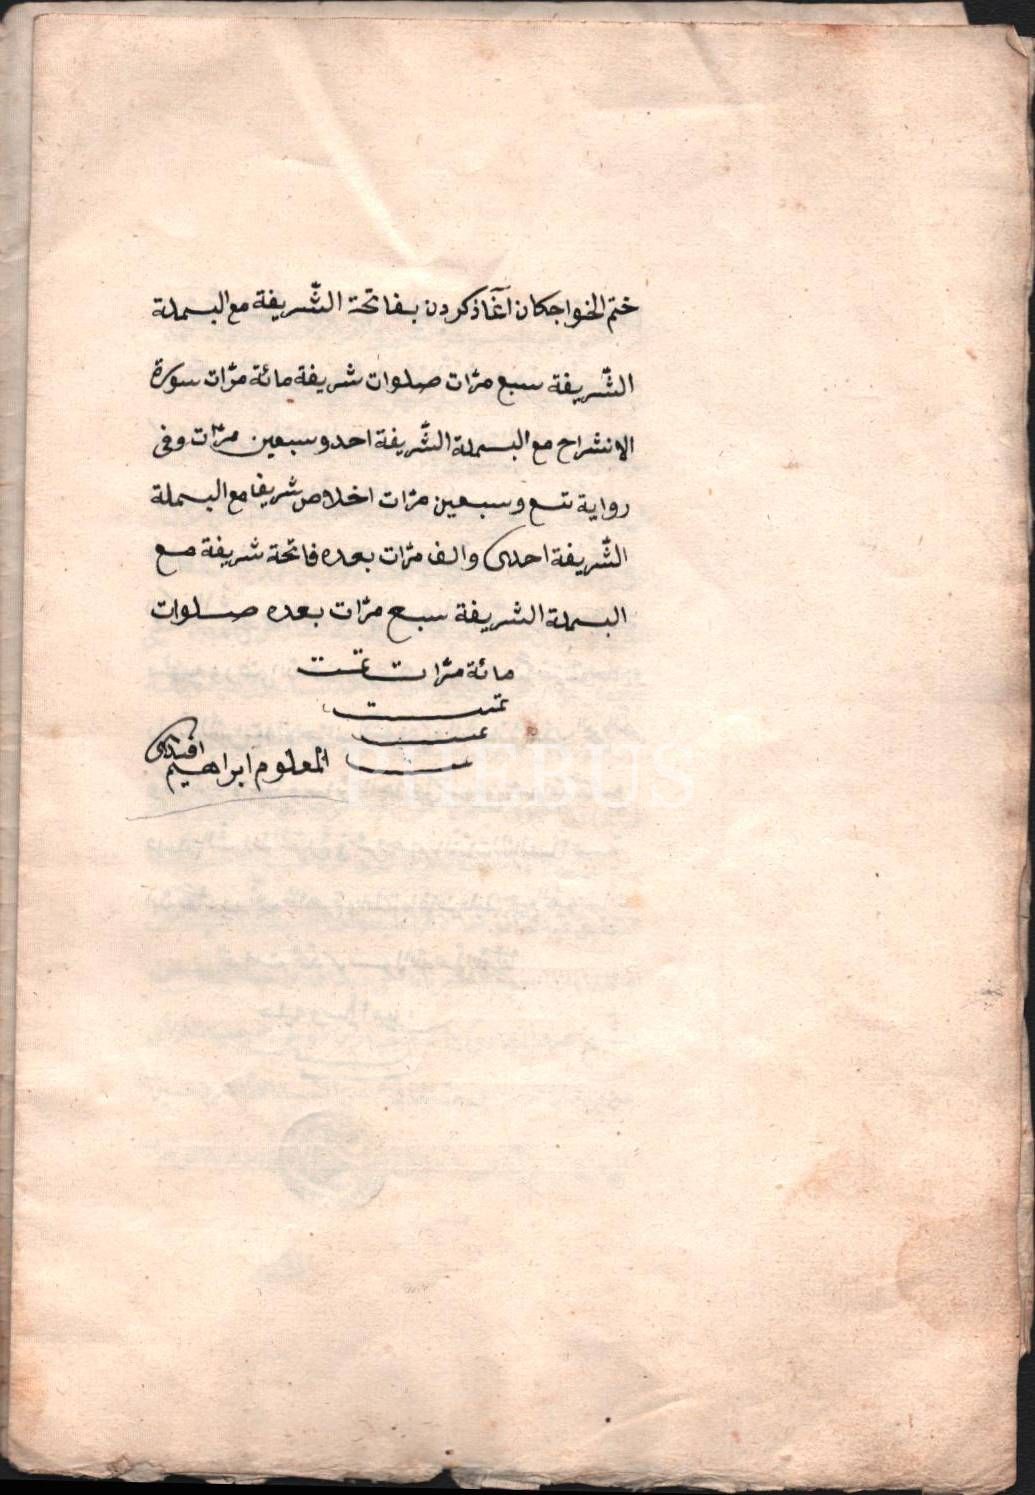 ختم الخواجكان آغاذ كردن بفاتحة الشّريفة مع البسملة
الشّريفة سبع مرّات صلوات شريفة مائة مرّات سورة
الانشراح مع البسملة الشّريفة احد وسبعين مرّات وفى
رواية تسع وسبعين مرّات اخلاص شريفا مع البسملة
الشّريفة احدى والف مرّات بعده فاتحة شريفة مع
البسملة الشريفة سبع مرّات بعده صلوات
مائة مرّات تمّت
تمت
تمت
تمت
المعلوم ابراهيم افندى
PHEBUS